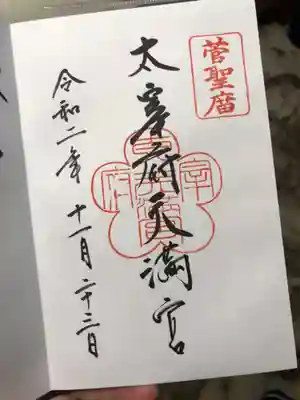 菅聖庿
太宰府天満宮
令和二年 十一月二十三日